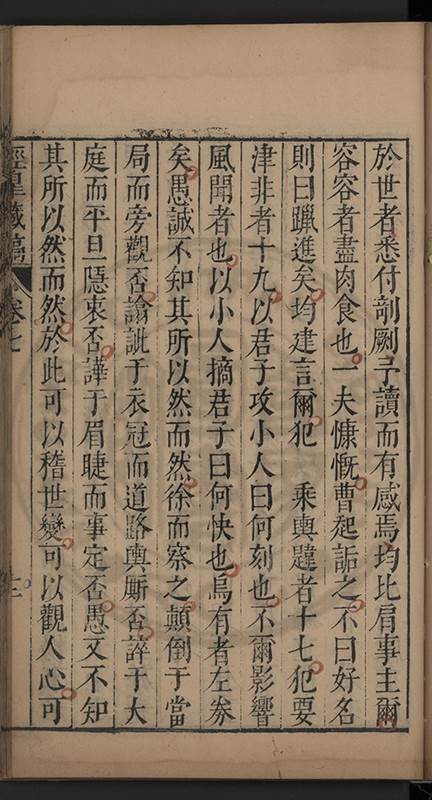 於世者悉付剞劂予讀而有感焉均比肩事主爾
容容者盡肉食也一夫慷慨曹起詬之不曰好名
則曰躐進矣均建言爾犯 乘輿韙者十七犯要
津非者十九以君子攻小人曰何刻也不爾影響
風聞者也以小人摘君子曰何快也烏有者左券
矣愚誠不知其所以然而然徐而察之顛倒于當
局而旁觀否諭訿于衣冠而道路輿廝否誶于大
庭而平旦隱衷否譁于眉睫而事定否愚又不知
其所以然而然於此可以稽世變可以觀人心可
涇皋藏稿 卷七 十二